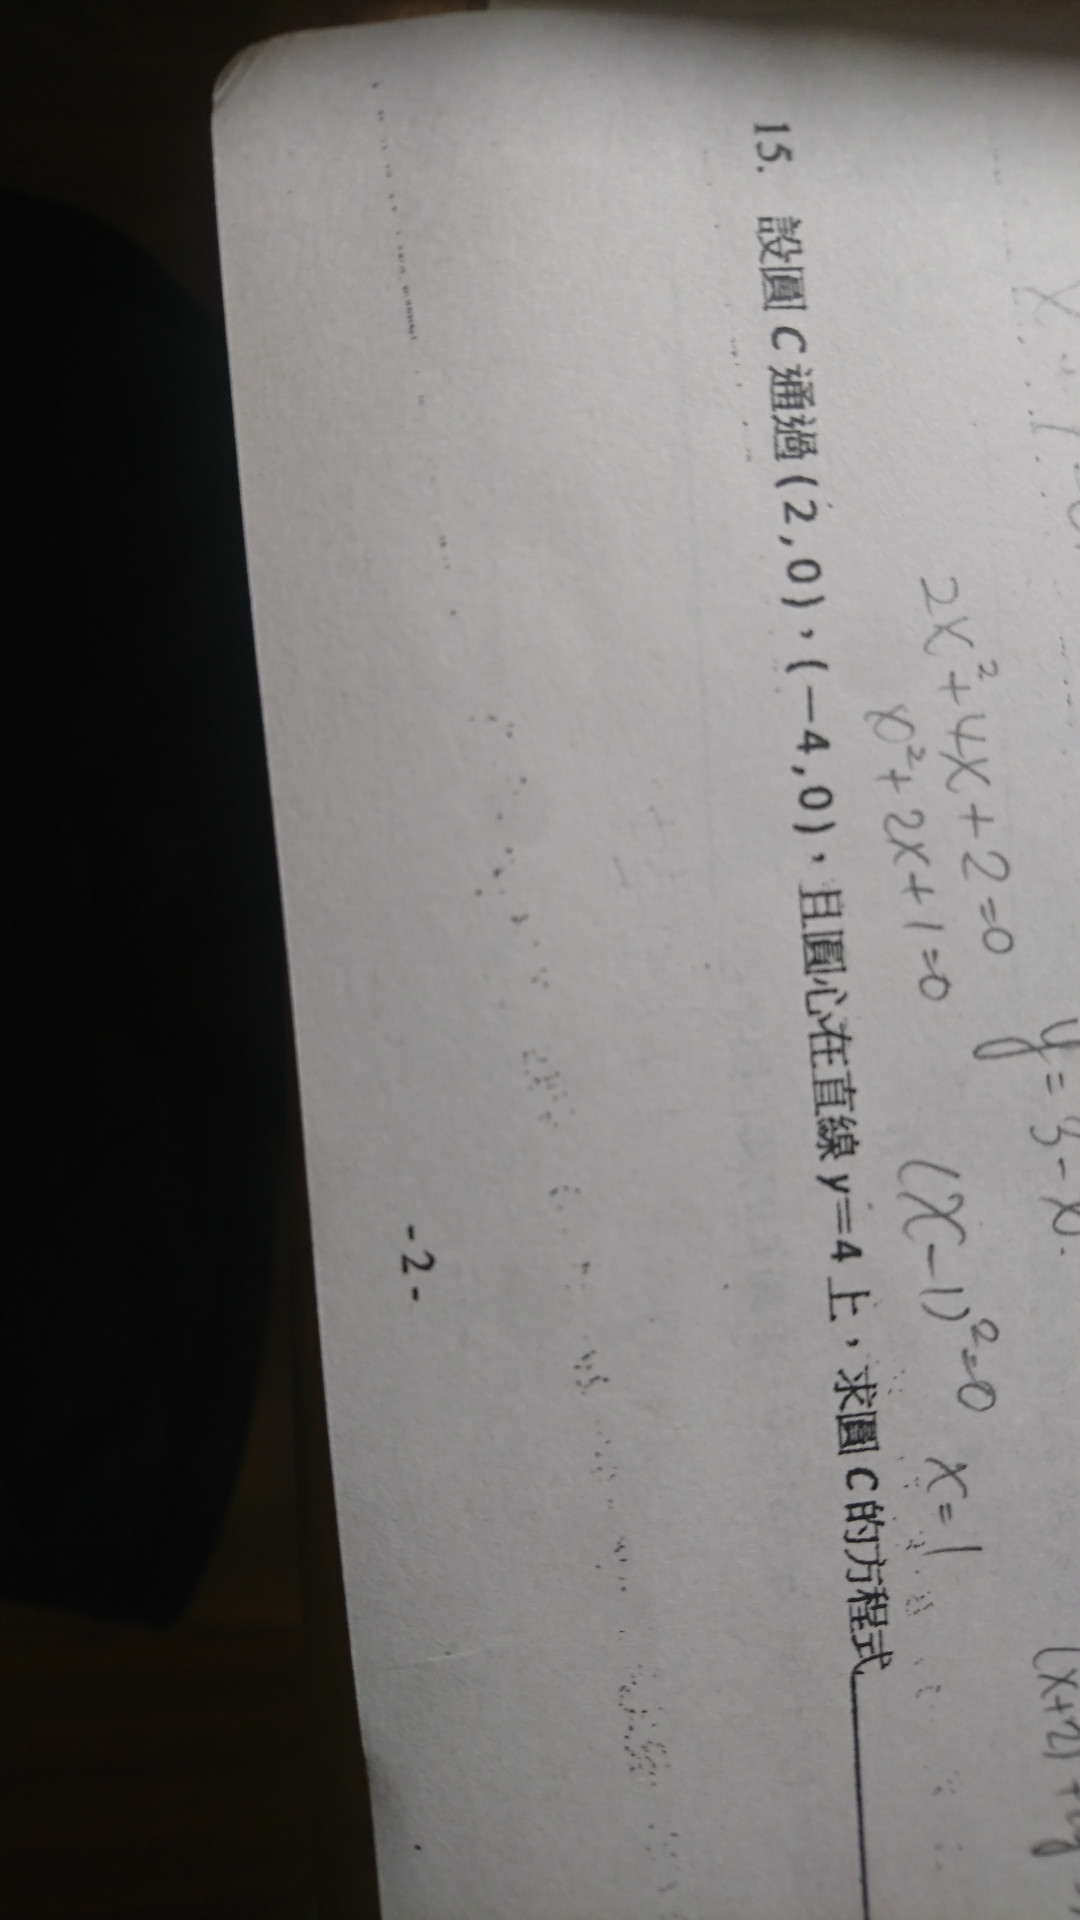 y=3-x
2x²+4x+2=0
x²+2x+1=0
(x-1)²=0
x=1
15. 設圓 C 通過(2,0),(-4,0),且圓心在直線 y=4 上,求圓 C 的方程式
-2-